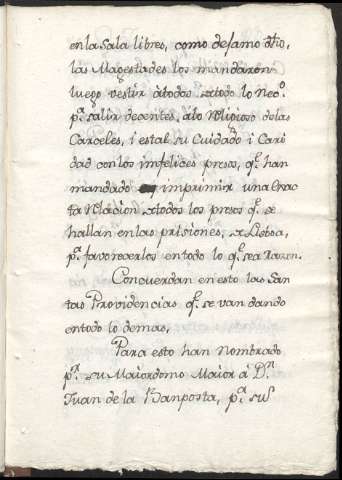 en la Sala libres, como desamo dho,
las Magestades los mandaron
luego vestir átodos, á todo lo Neco.
pa. salir decentes, álo Religioso delas
Carceles, i estal su Cuidado i Cari
dad con los infelices presos, qe. han
mandado imprimir una Exac
ta Relacion á todos los presos qe. se
hallan en las prisiones, á Lisboa,
pa. favorecerlos en todo lo qe. sea Razon.
Concuerdan en esto las San
tas Providencias qe. se van dando
en todo lo demas,
Para esto han Nombrado
pa. su Maiordomo Maior á Dn.
Juan de la pa. su